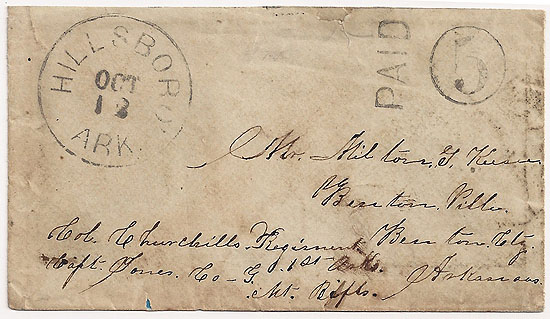 HILLSBORO
OCT
12
ARK.
PAID
5
Mr. Milton, T.
Benton, Ville
Benton, Cty.
Arkansas.
Col. Churchills. Regiment
1st Arks.
Capt. Jones. Co - G.
Mt. Rifls.